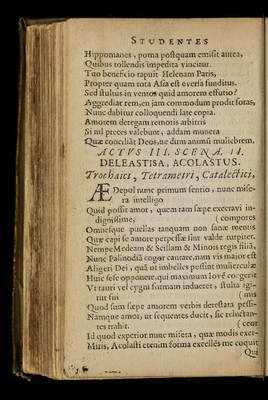 STUDENTES
Hippomanes, poma postquam emisit aurea,
Quibus tollendis impedita vincitur.
Tuo beneficio rapuit Helenam Paris,
Propter quam tota Asia est eversa funditus.
Sed stultus in ventos quid amorem effutio?
Aggrediar rem, en jam commodum prodit foras,
Nunc dabitur colloquendi late copia.
Amorem detegam remotis arbitris
Si nil preces valebunt, addam munera
Quæ conciliāt Deos, ne dum animū muliebrem.
ACTVS III. SCENA. II.
DELEASTISA, ACOLASTUS.
Trochaici, Tetrametri, Catalectici,
ÆDepol nunc primum sentio, nunc mise-
ra intelligo
Quid possit amor, quem tam sæpe execravi in-
dignissime, ( compotes
Omnesque puellas tanquam non sanæ mentis
Quæ capi se amore perpessæ sint valde turpiter.
Nempe Medeam & Scillam & Minois regis filiā,
Nunc Palinodiā cogor cantare, nam vis major est
Aligeri Dei, quā ut imbelles possint mulierculæ
Huic sese opponere, qui maximum Iovē coegerit
Vt tauri vel cygni formam indueret, stulta igi-
tur fui ( mis
Quod sum sæpe amorem verbis detestata pessi-
Namque amor, ut sequentes ducit, sic reluctan-
tes trahit. ( ceor
Id quod experior nunc misera, quæ modis exer-
Miris, Acolasti etenim forma excellēs me coquit
Qui